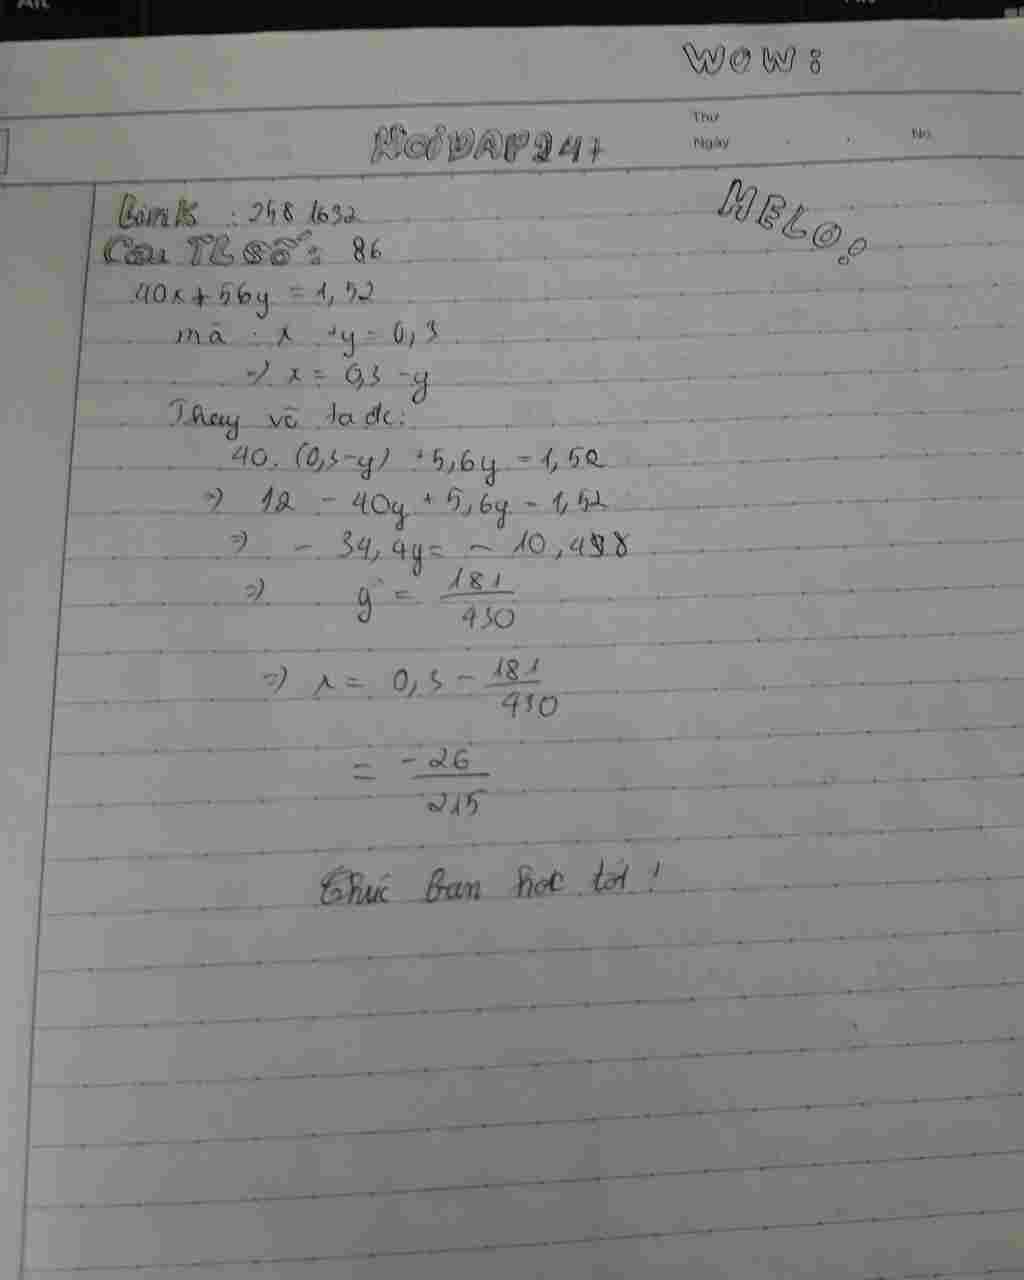 Alt
WOW:
HOIDAP247
Thứ
Ngày
No.
HELO!
: 2481632
Câu TL số: 86
40x + 56y = 1,52
mà : x + y = 0,3
=> x = 0,3 - y
Thay vô ta đc:
40. (0,3-y) + 5,6y = 1,52
=> 12 - 40y + 5,6y = 1,52
=> - 34,4y = - 10,48
=> y = 181/430
=> x = 0,3 - 181/430
= -26/215
Chúc bạn học tốt!